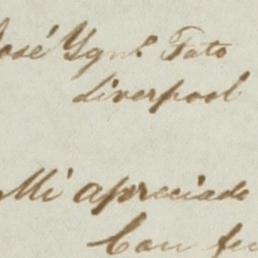 José Ygn.º Tato
Liverpool
Mi apreciado
Con fe